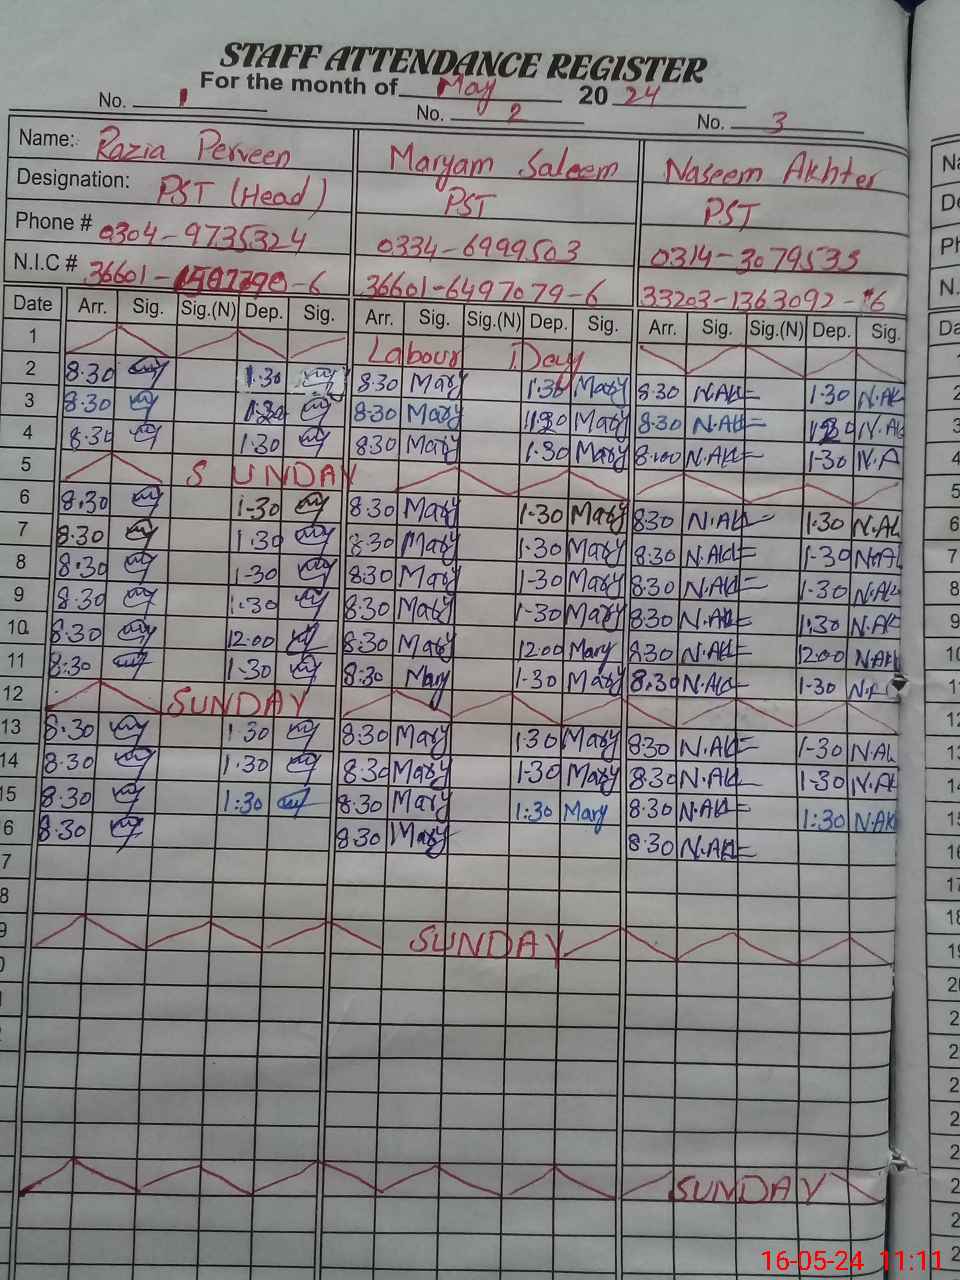 STAFF ATTENDANCE REGISTER
For the month of May 2024
No. 1 No. 2 No. 3
Name: Razia Perveen Maryam Saleem Naseem Akhter Na
Designation: PST (Head) PST PST De
Phone # 0304-9735324 0334-6999503 0314-3079533 Ph
N.I.C # 36601- -6 36601-6497079-6 33203-1363092-6 N.
Date Arr. Sig. Sig.(N) Dep. Sig. Arr. Sig. Sig.(N) Dep. Sig. Arr. Sig. Sig.(N) Dep. Sig. Da
1 Labour Day
2 8.30 1.30 8.30 Mary 1.30 Mary 8.30 N.Ak 1.30 N.Ak 2
3 8.30 1.30 8.30 Mary 1.30 Mary 8.30 N.Ak 1.30 N.Ak 3
4 8.30 1.30 8.30 Mary 1.30 Mary 8.00 N.Ak 1-30 N.A 4
5 SUNDAY 5
6 8.30 1-30 8.30 Mary 1-30 Mary 830 N.Ak 1.30 N.Ak 6
7 8.30 1.30 8.30 Mary 1.30 Mary 8.30 N.Ak 1-30 N.A 7
8 8.30 1-30 8.30 Mary 1-30 Mary 8.30 N.Ak 1-30 N.Ak 8
9 8.30 1.30 8.30 Mary 1-30 Mary 8.30 N.Ak 1.30 N.Ak 9
10 8.30 12.00 8.30 Mary 12.00 Mary 8.30 N.Ak 12.00 N.Ak 10
11 8.30 1-30 8.30 Mary 1-30 Mary 8.30 N.Ak 1-30 N.A 11
12 SUNDAY 12
13 8.30 1.30 8.30 Mary 1.30 Mary 8.30 N.Ak 1-30 N.Ak 13
14 8.30 1.30 8.30 Mary 1-30 Mary 8.30 N.Ak 1-30 N.Ak 14
15 8.30 1:30 8.30 Mary 1:30 Mary 8.30 N.Ak 1:30 N.Ak 15
6 8.30 8.30 Mary 8.30 N.Ak 16
7 17
8 18
9 SUNDAY 19
0 20
2
2
2
2
2
2
SUNDAY 2
2
2
16-05-24 11:11 2